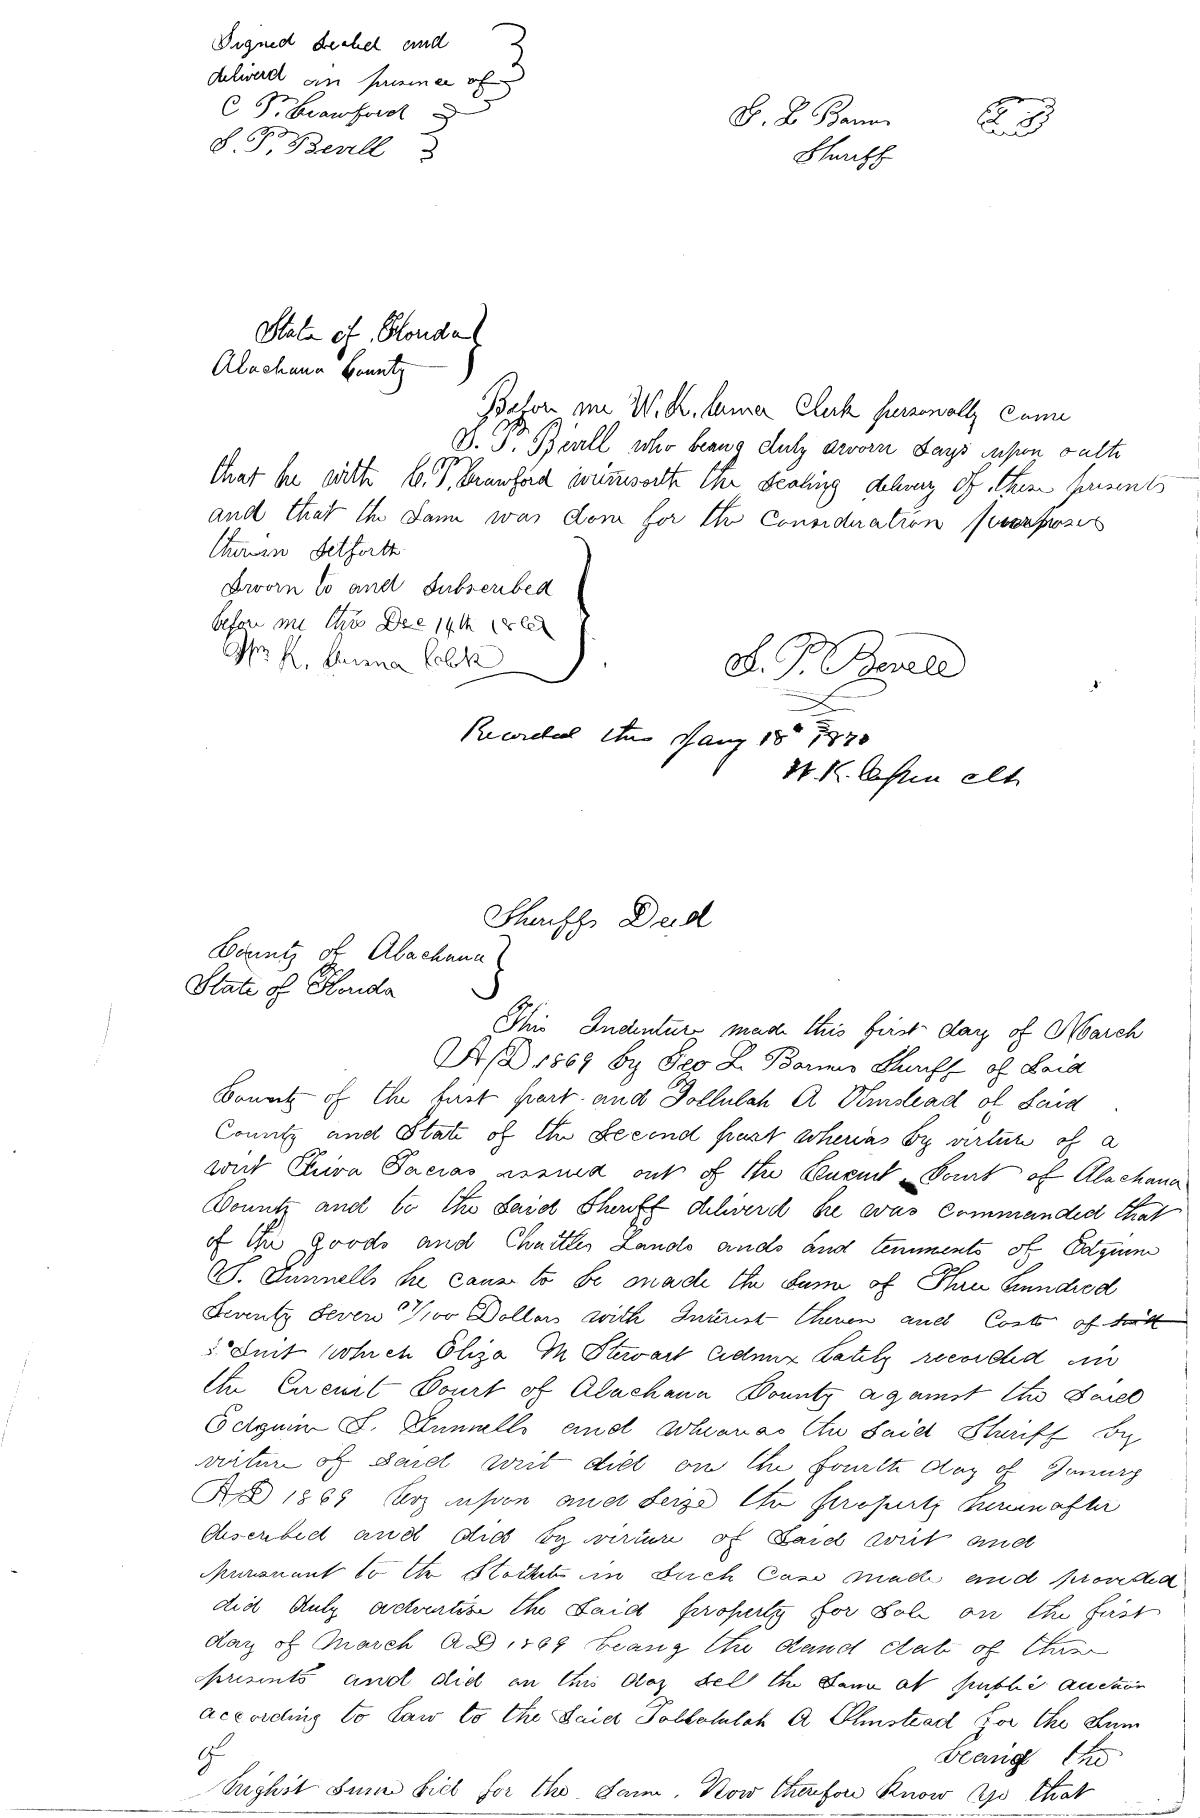 Signed Sealed and
deliverd in presence of
C P. Crawford
S. P. Bevill
G. L Barnes
Sheriff
State of Florida
Alachua County
Before me W. K. Clerk personally came
S. P. Bevill who beang duly sworn Says upon oath
that he with C. P. Crawford the Sealing delivery of these presents
and that the Same was done for the Consideration purposes
therein Setforth
Sworn to and Subscribed
before me this Dec 14th
Wm K. Clerk
S. P. Bevill
Recorded this Jany 18th 1870
W. K. clk
Sheriffs Deed
County of Alachua
State of Florida
This Indenture made this first day of March
A D 1869 by Geo L. Barnes Sheriff of Said
County of the first part and Tollulah A Olmstead of Said
County and State of the Second part wherias by virture of a
writ Facias issued out of the Circuit Court of Alachua
County and to the Said Sheriff deliverd he was commanded that
of the goods and Chattles Lands ands and tenments of
S. he cause to be made the Sum of Three hundred
Seventy Seven /100 Dollars with Interest theron and Costs of
Suit which Eliza M Stewart Admx Lately recorded in
the Circuit Court of Alachua County against the Said
S. and Wheras the Said Sheriff by
virture of Said writ did on the fourth day of
A D 1869 levy upon and Seize the property hereinafter
described and did by virture of Said writ and
pursuant to the in Such Case made and provided
did duly advertise the Said property for Sale on the first
day of March A.D 1869 beang the dand date of these
presents and did on this day Sell the Same at public auction
according to Law to the Said A Olmstead for the Sum
of beang the
highist Sum bid for the Same. Now therefore Know ye that